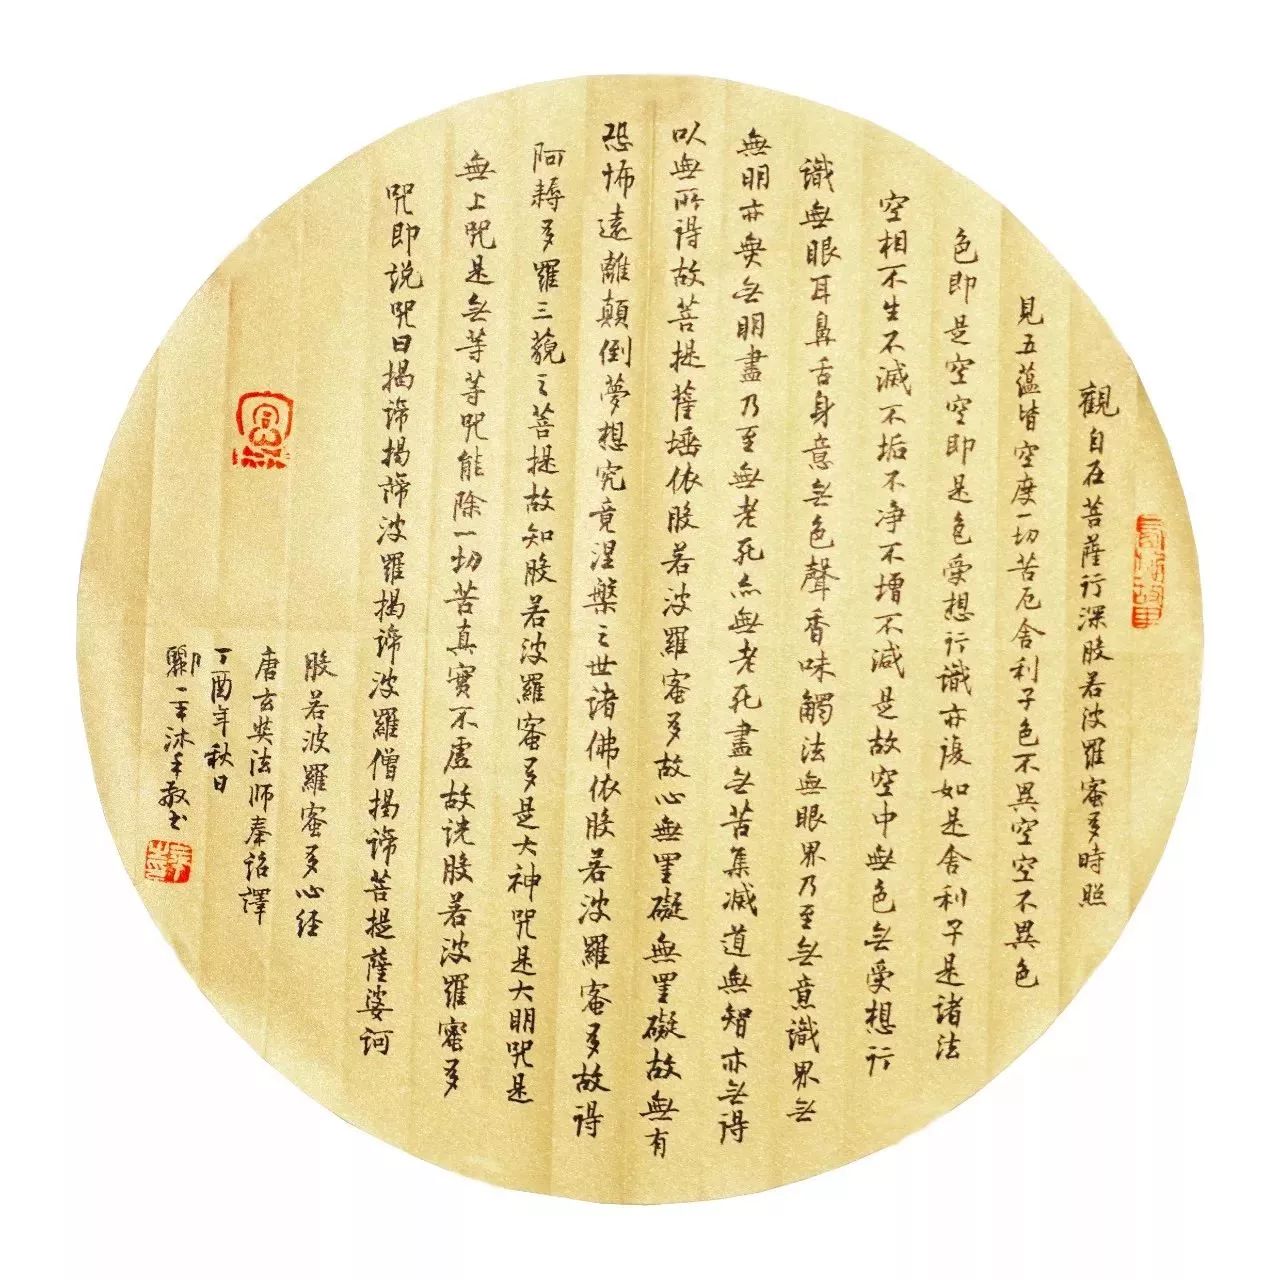 觀自在菩薩行深般若波羅蜜多時照
見五蘊皆空度一切苦厄舍利子色不異空空不異色
色即是空空即是色受想行識亦復如是舍利子是諸法
空相不生不滅不垢不净不增不減是故空中無色无受想行
識無眼耳鼻舌身意无色聲香味觸法無眼界乃至无意識界无
無明亦無无明盡乃至無老死亦無老死盡无苦集滅道無智亦无得
以無所得故菩提薩埵依般若波羅蜜多故心無罣礙無罣礙故無有
恐怖遠離顛倒夢想究竟涅槃三世諸佛依般若波羅蜜多故得
阿耨多羅三藐三菩提故知般若波羅蜜多是大神咒是大明咒是
無上咒是无等等咒能除一切苦真實不虛故說般若波羅蜜多
咒即説咒曰揭諦揭諦波羅揭諦波羅僧揭諦菩提薩婆訶
般若波羅蜜多心經
唐玄奘法師奉詔譯
丁酉年秋日
沐手敬书